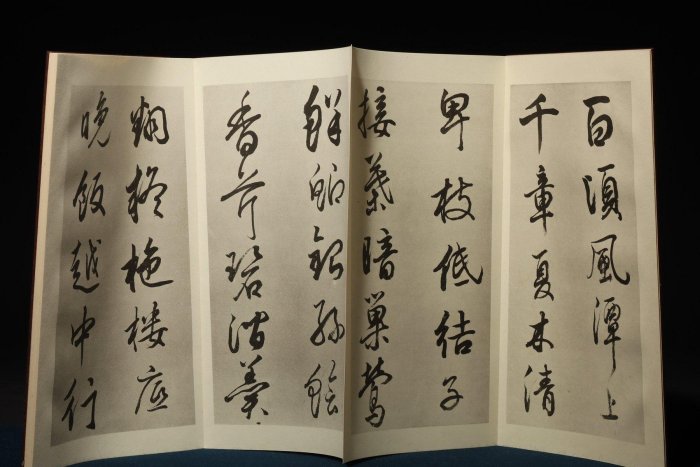 百頃風潭上
千章夏木清
卑枝低結子
接葉暗巢鶯
鮮鯽銀絲鱠
香芹碧澗羹
翻疑柂樓底
晚飯越中行